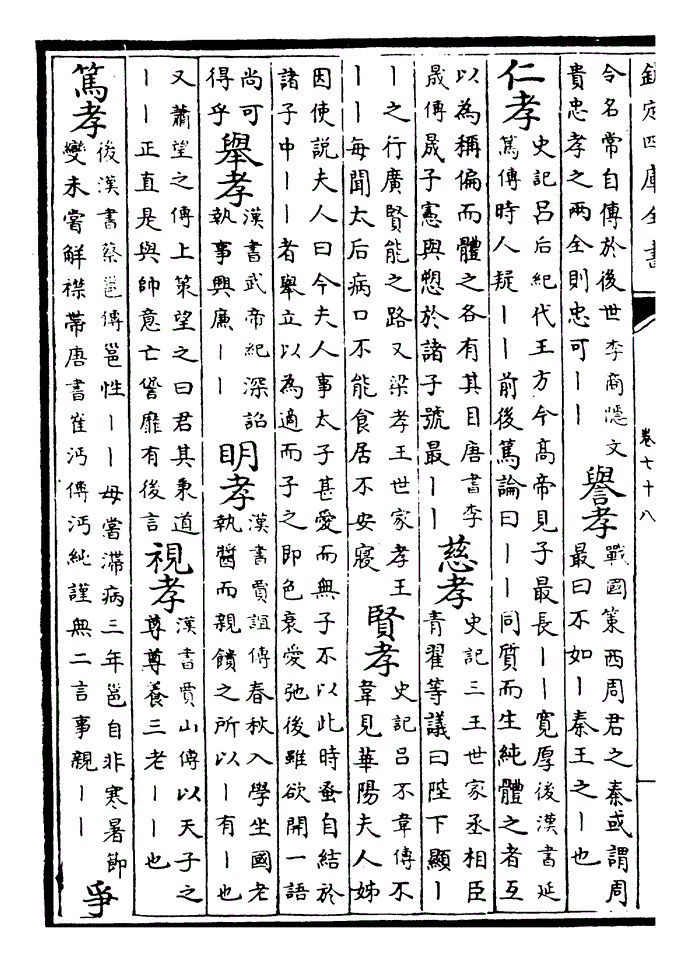 欽定四庫全書
卷七十八
令名常自傳於後世李商隱文
貴忠孝之兩全則忠可丨丨
譽孝
戰國策西周君之秦或謂周
最曰不如丨秦王之丨也
仁孝
史記呂后紀代王方今髙帝見子最長丨丨寛厚後漢書延
篤傳時人疑丨丨前後篤論曰丨丨同質而生純體之者互
以為稱偏而體之各有其目唐書李
晟傳晟子憲與愬於諸子號最丨丨
慈孝
史記三王世家丞相臣
青翟等議曰陛下顯丨
丨之行廣賢能之路又梁孝王世家孝王
丨丨每聞太后病口不能食居不安寢
賢孝
史記呂不韋傳不
韋見華陽夫人姊
因使説夫人曰今夫人事太子甚愛而無子不以此時蚤自結於
諸子中丨丨者舉立以為適而子之即色衰愛弛後雖欲開一語
尚可
得乎
舉孝
漢書武帝紀深詔
執事興廉丨丨
明孝
漢書賈誼傳春秋入學坐國老
執醬而親饋之所以丨有丨也
又蕭望之傳上策望之曰君其秉道
丨丨正直是與帥意亡諐靡有後言
視孝
漢書賈山傳以天子之
尊尊養三老丨丨也
篤孝
後漢書蔡邕傳邕性丨丨母嘗滯病三年邕自非寒暑節
變未嘗解襟帶唐書崔沔傳沔純謹無二言事親丨丨
爭